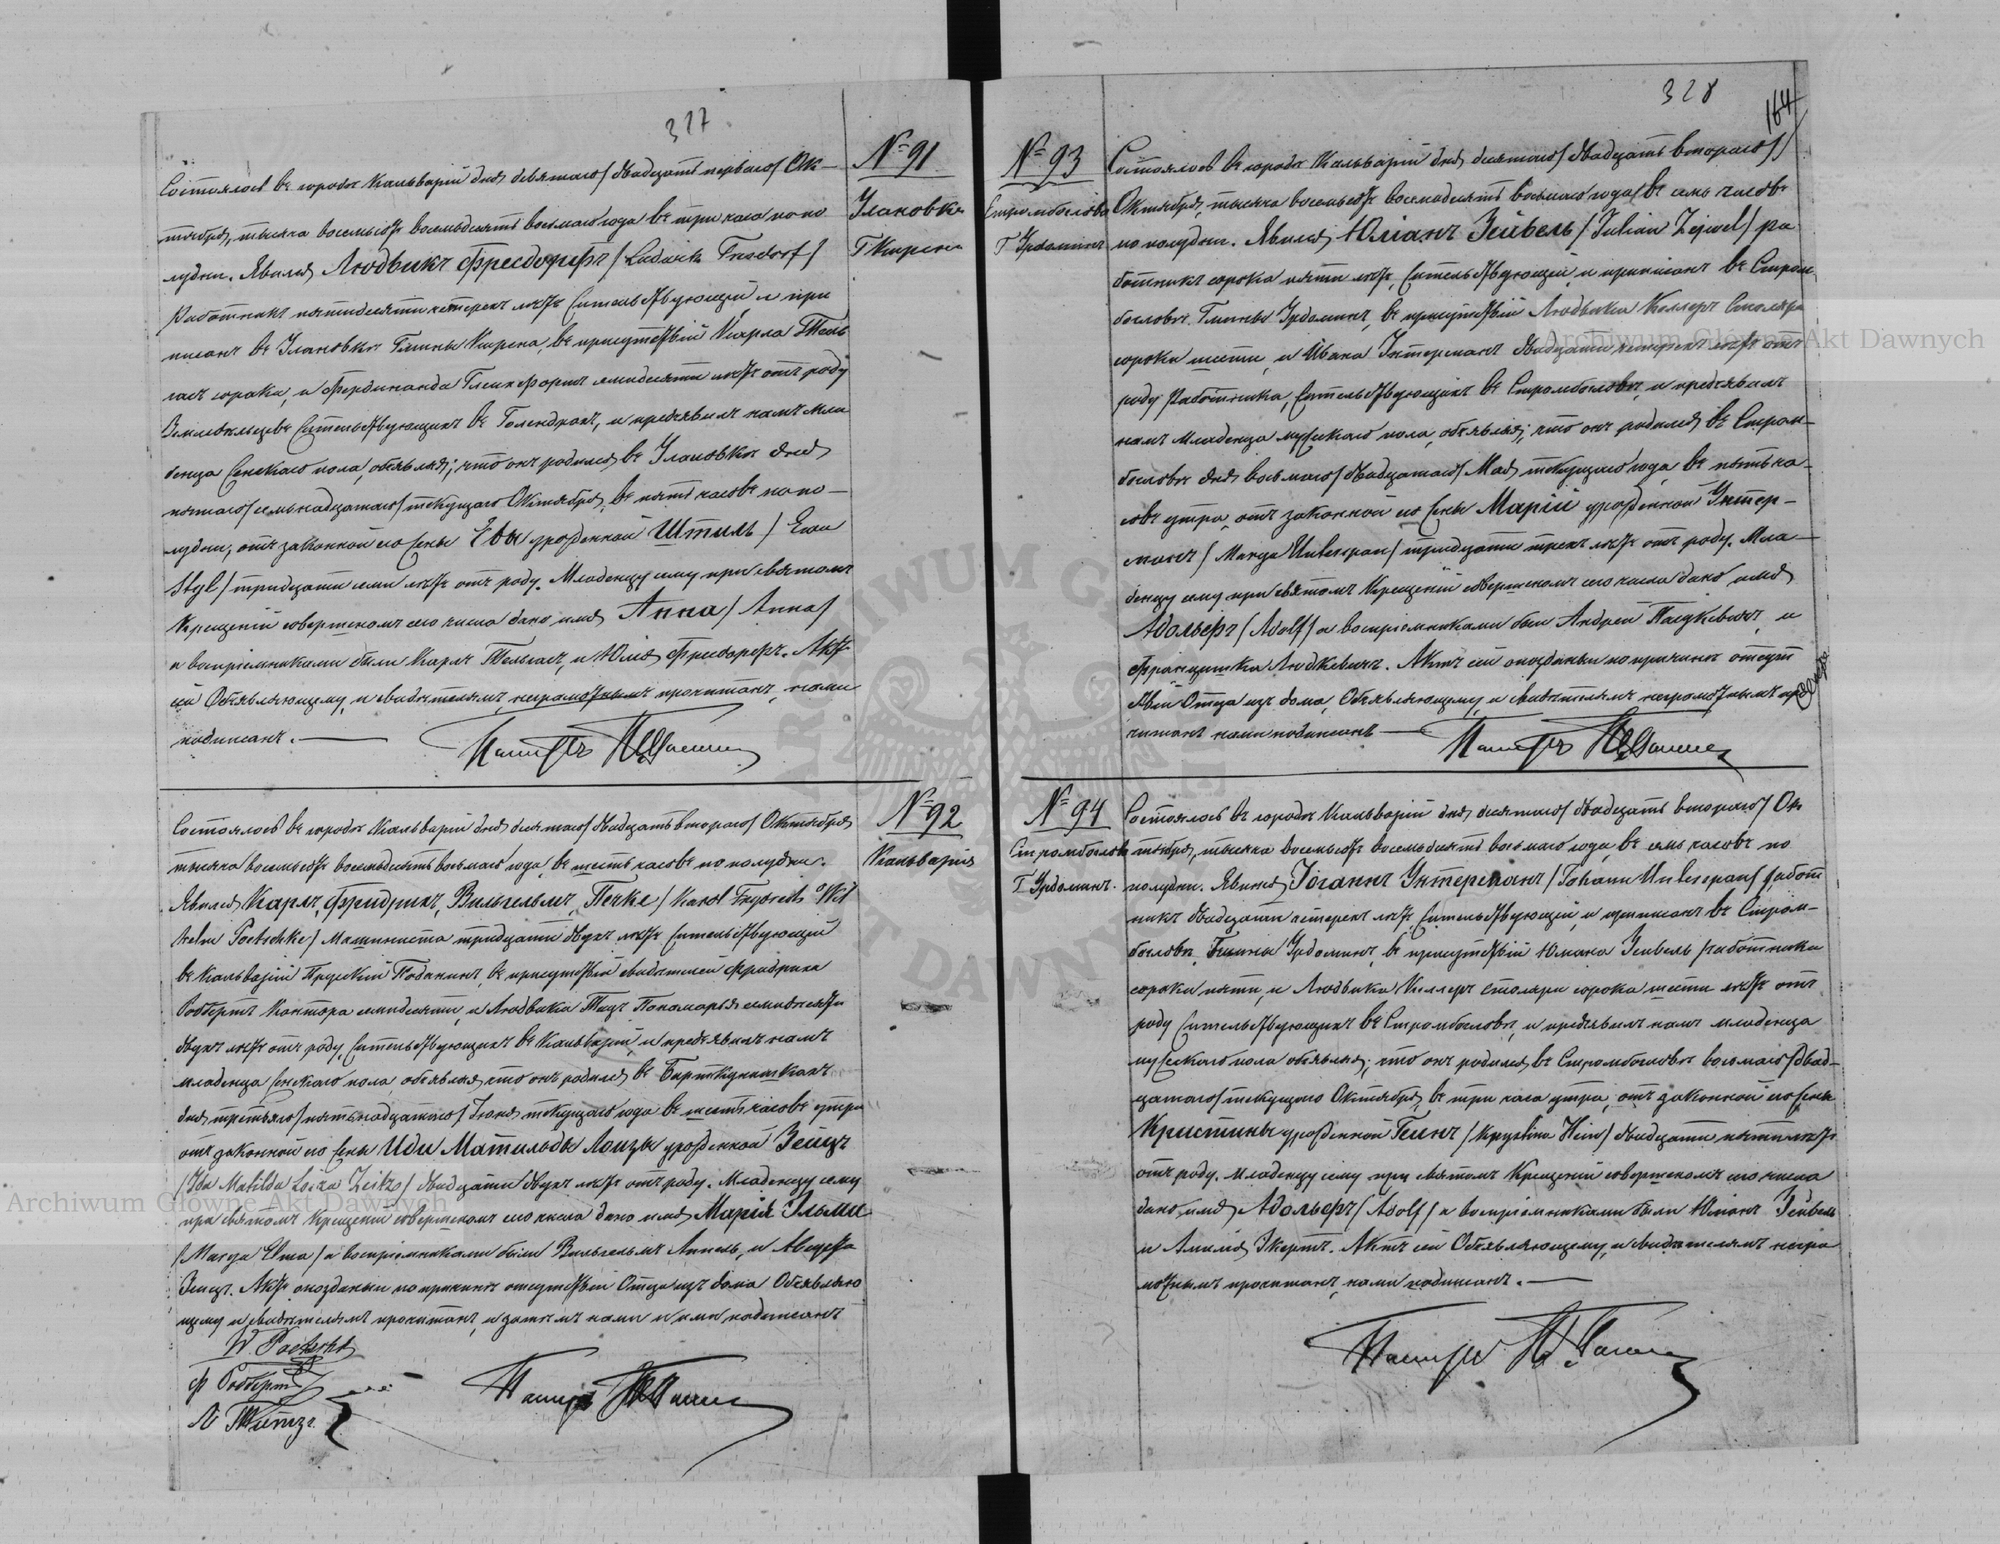 327
№ 91
Улановка
Г. Кирсна
Состоялось въ городѣ Кальварій дня девятаго / двадцать перваго / Ок-
тября, тысяча восемьсотъ восемьдесятъ восьмаго года въ три часа попо
лудни. Явился Людвикъ Фрейдорфъ / Ludwik
работникъ пятидесяти четырехъ лѣтъ жительствующій и при
писанъ въ Улановкѣ Гмины Кирсна, въ присутствіи Карла
сорока, и Фердинанда семидесяти лѣтъ отъ роду
Земледѣльцевъ жительствующихъ въ и предъявилъ намъ мла
денца женскаго пола, объявляя; что онъ родился въ Улановкѣ дня
пятаго / семьнадцатаго / текущаго Октября, въ пять часовъ попо-
лудни, отъ законной его жены Евы урожденной Штиль / Ewa
Styl / тридцати семи лѣтъ отъ роду. Младенцу сему при святомъ
Крещеніи совершенномъ сего числа дано имя Анна / Anna /
а воспріемниками были Карлъ и Юлія Актъ
сей Объявляющему, и свидѣтелямъ неграмотнымъ прочитанъ, нами
подписанъ.
Пасторъ
№ 92
Кальварія
Состоялось въ городѣ Кальварій дня десятаго / двадцать втораго / Октября
тысяча восемьсотъ восемьдесятъ восьмаго года, въ шесть часовъ пополудни.
Явился Карлъ, Фридрихъ, Вильгельмъ, Печке / Karol Frydrich Wil
helm Poetschke / Машиниста тридцати двухъ лѣтъ жительствующій
въ Кальваріи Прускій Подданнъ, въ присутствіи свидѣтелей Фридриха
Роббертъ Кантора семидесяти, и Людвика Тицъ Пономарья семидесяти
двухъ лѣтъ отъ роду, жительствующихъ въ Кальваріи, и предъявилъ намъ
младенца женскаго пола объявляя что онъ родился въ
дня третьяго / пятьнадцатаго / Іюня текущаго года въ шесть часовъ утра
отъ законной его жены Иды Матильды Лоизы урожденной Зейцъ
/ Ida Matilda Loiza Zeitz / двадцати двухъ лѣтъ отъ роду. Младенцу сему
при святомъ Крещеніи совершенномъ сего числа дано имя Марія Эльма
/ Marya Elma / а воспріемниками были Вильгельмъ и Августа
Зейцъ. Актъ опозданый по причинѣ отсутствій Отца изъ дома Объявляю
щему и свидѣтелямъ прочитанъ, и затѣмъ нами и ими подписанъ
W Poetschke
Ф Роббертъ
Л Титцъ.
Пасторъ
328
164
№ 93
Г. Урдоминъ
Состоялось въ городѣ Кальварій дня десятаго / двадцать втораго /
Октября, тысяча восемьсотъ восемьдесятъ восьмаго года въ семь часовъ
пополудни. Явился Юліанъ Зейвель / Julian Zejwel / ра
ботникъ сорока пяти лѣтъ, жительствующій и приписанъ въ Стром
Гмины Урдоминъ, въ присутствіи Людвика Келлеръ Столяра
сорока шести, и Ивана Унтерманъ двадцати четырехъ лѣтъ отъ
роду работника, жительствующихъ въ и предъявилъ
намъ младенца мужскаго пола, объявляя; что онъ родился въ Стром-
дня восьмаго / двадцатаго / Мая текущаго года, въ пять ча-
совъ утра, отъ законной его жены Маріи урожденной Унтер-
манъ / Marya / тридцати трехъ лѣтъ отъ роду. Мла-
денцу сему при святомъ Крещеніи совершенномъ сего числа дано имя
Адольфъ / Adolf / а воспріемниками были Андрей и
Францишка Актъ сей опозданый по причинѣ отсут
ствій Отца изъ дома, Объявляющему, и свидѣтелямъ неграмотнымъ про
читанъ нами подписанъ
Пасторъ
№ 94
Г. Урдоминъ.
Состоялось въ городѣ Кальварій дня десятаго / двадцать втораго / Ок
тября, тысяча восемьсотъ восемьдесятъ восьмаго года, въ семь часовъ по
полудни. Явился Іоганнъ Унтерманъ / Johann / работ
никъ двадцати четырехъ лѣтъ, жительствующій, и приписанъ въ Стром-
Гмины Урдоминъ, въ присутствіи Юліана Зейвель работника
сорока пяти, и Людвика Келлеръ столяра сорока шести лѣтъ отъ
роду жительствующихъ въ и предъявилъ намъ младенца
мужскаго пола объявляя; что онъ родился въ восьмаго / двад-
цатаго / текущаго Октября, въ три часа утра, отъ законной его жены
Кристины урожденной Гейнъ / Krystina Hein / двадцати пяти лѣтъ
отъ роду. Младенцу сему при святомъ Крещеніи совершенномъ сего числа
дано имя Адольфъ / Adolf / а воспріемниками были Юліанъ Зейвель
и Амилія Экертъ. Актъ сей Объявляющему, и свидѣтелямъ негра
мотнымъ прочитанъ, нами подписанъ.
Пасторъ
Archiwum Główne Akt Dawnych
Archiwum Główne Akt Dawnych